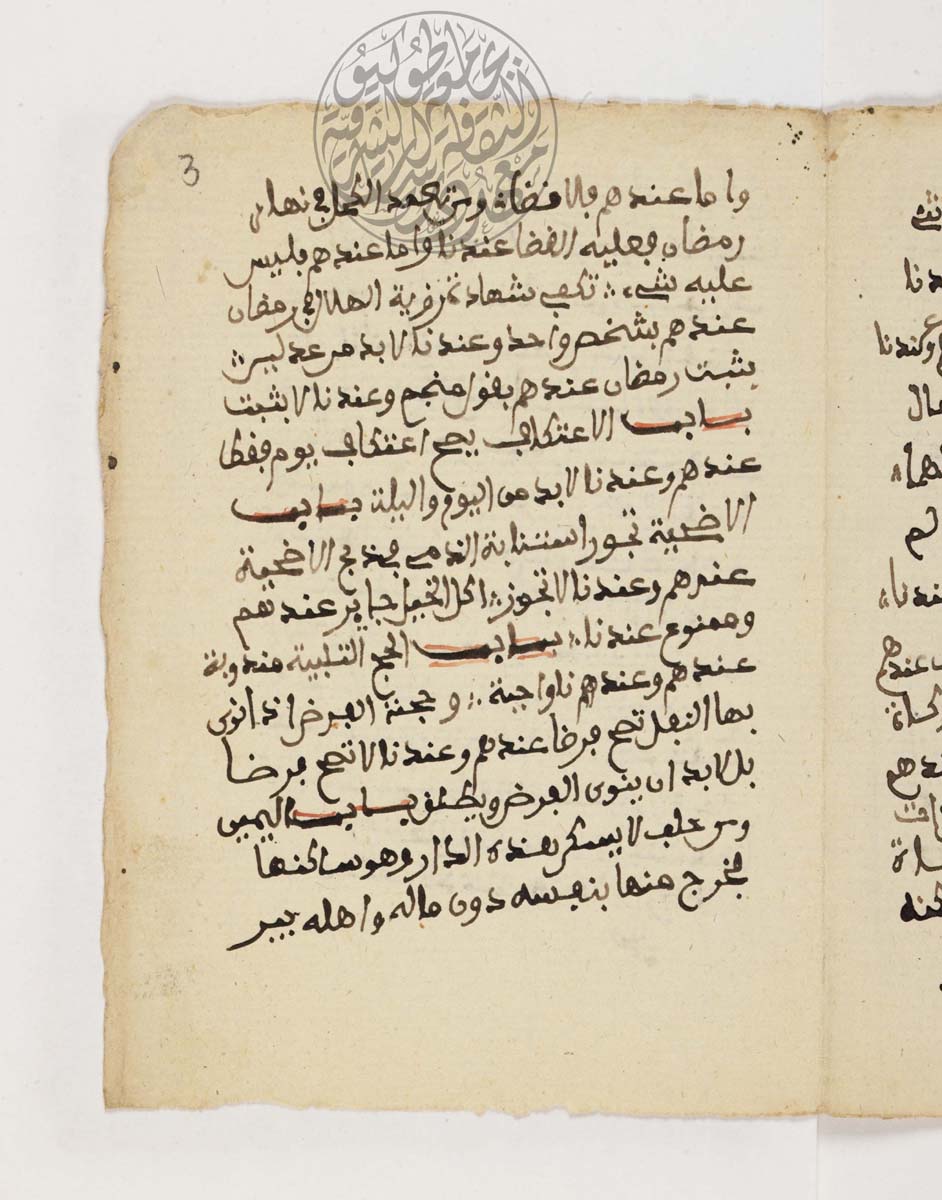 3
واما عندهم فلا قضاء ومن تعمد الكحل في نهار
رمضان فعليه القضا عندنا واما عندهم فليس
عليه شيء ؞ تكفي شهادة رؤية الهلال في رمضان
عندهم بشخص واحد وعندنا لا بد من عدلين ؞
يثبت رمضان عندهم بقول منجم وعندنا لا يثبت
باب الاعتكاف يصح اعتكاف يوم فقط
عندهم وعندنا لا بد من اليوم والليلة باب
الاضحية تجوز استنابة الذمي في ذبح الاضحية
عندهم وعندنا لا تجوز ؞ اكل الخيل جايز عندهم
وممنوع عندنا ؞ باب الحج التلبية مندوبة
عندهم وعندهم ناواجبة ؞ وحجة الفرض اذا نوى
بها النفل تصح فرضا عندهم وعندنا لا تصح فرضا
بل لا بد ان ينوى الفرض ويطلق باب اليمين
ومن حلف لا يسكن هذه الدار وهو ساكنها
فخرج منها بنفسه دون ماله واهله يبر
شيء
دنا
وعندنا
حال
لم
ندنا ؞
عندهم
ندهم